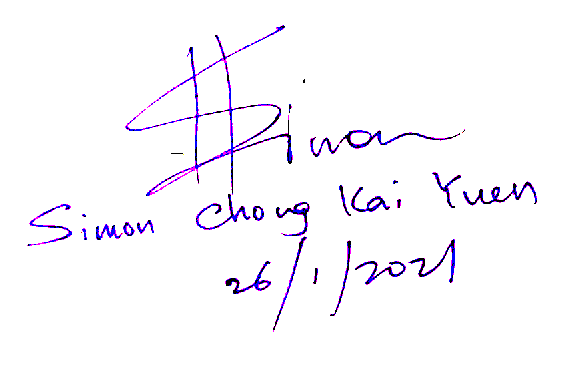 $imon
Simon Chong Kai Yuen
26/1/2021